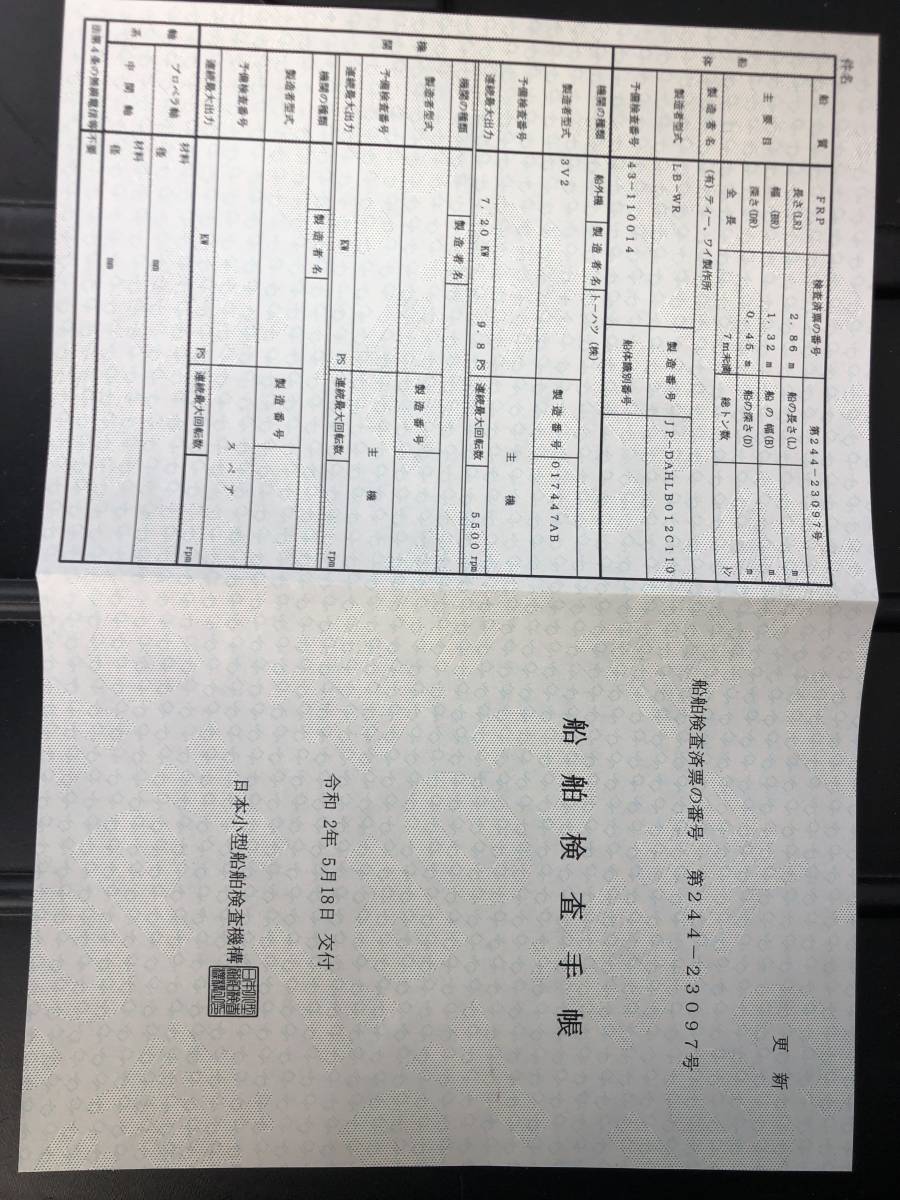 件名
船質 FRP 検査済票の番号 第244-23097号
船体
主要目
長さ(LR) 2.86 m 船の長さ(L) m
幅(BR) 1.32 m 船の幅(B) m
深さ(DR) 0.45 m 船の深さ(D) m
全長 7m未満 総トン数 トン
製造者名 (有)ティー、ワイ製作所
製造者型式 LB-WR 製造番号 JP-DAHLB012C110
予備検査番号 43-110014 船体識別番号
機関
機関の種類 船外機 製造者名 トーハツ(株)
製造者型式 3V2 製造番号 017447AB
予備検査番号 主機
連続最大出力 7.20 KW 9.8 PS 連続最大回転数 5500 rpm
機関の種類 製造者名
製造者型式 製造番号
予備検査番号 主機
連続最大出力 KW PS 連続最大回転数 rpm
機関の種類 製造者名
製造者型式 製造番号
予備検査番号 スペア
連続最大出力 KW PS 連続最大回転数 rpm
軸系
プロペラ軸 材料 径 mm
中間軸 材料 径 mm
法第4条の無線電信等 不要
更新
船舶検査済票の番号 第244-23097号
船舶検査手帳
令和 2年 5月18日 交付
日本小型船舶検査機構